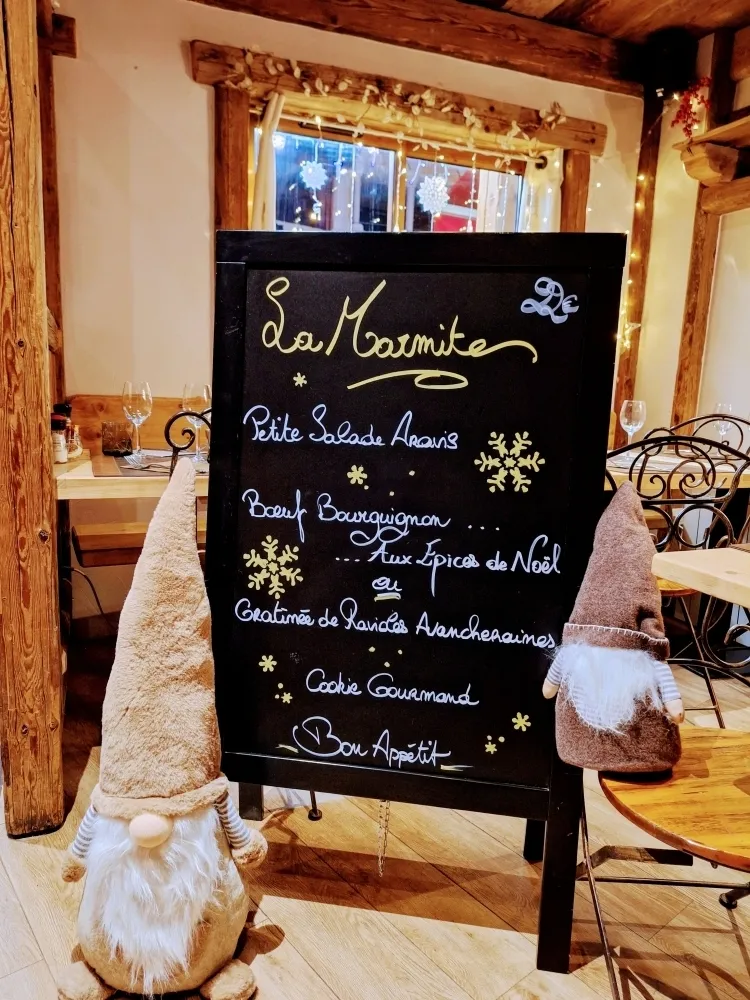 La Marmite
Petite Salade Aravis
Bœuf Bourguignon ....
... Aux Épices de Noël
ou
Gratinée de Ravioles Avancheraines
Cookie Gourmand
Bon Appétit